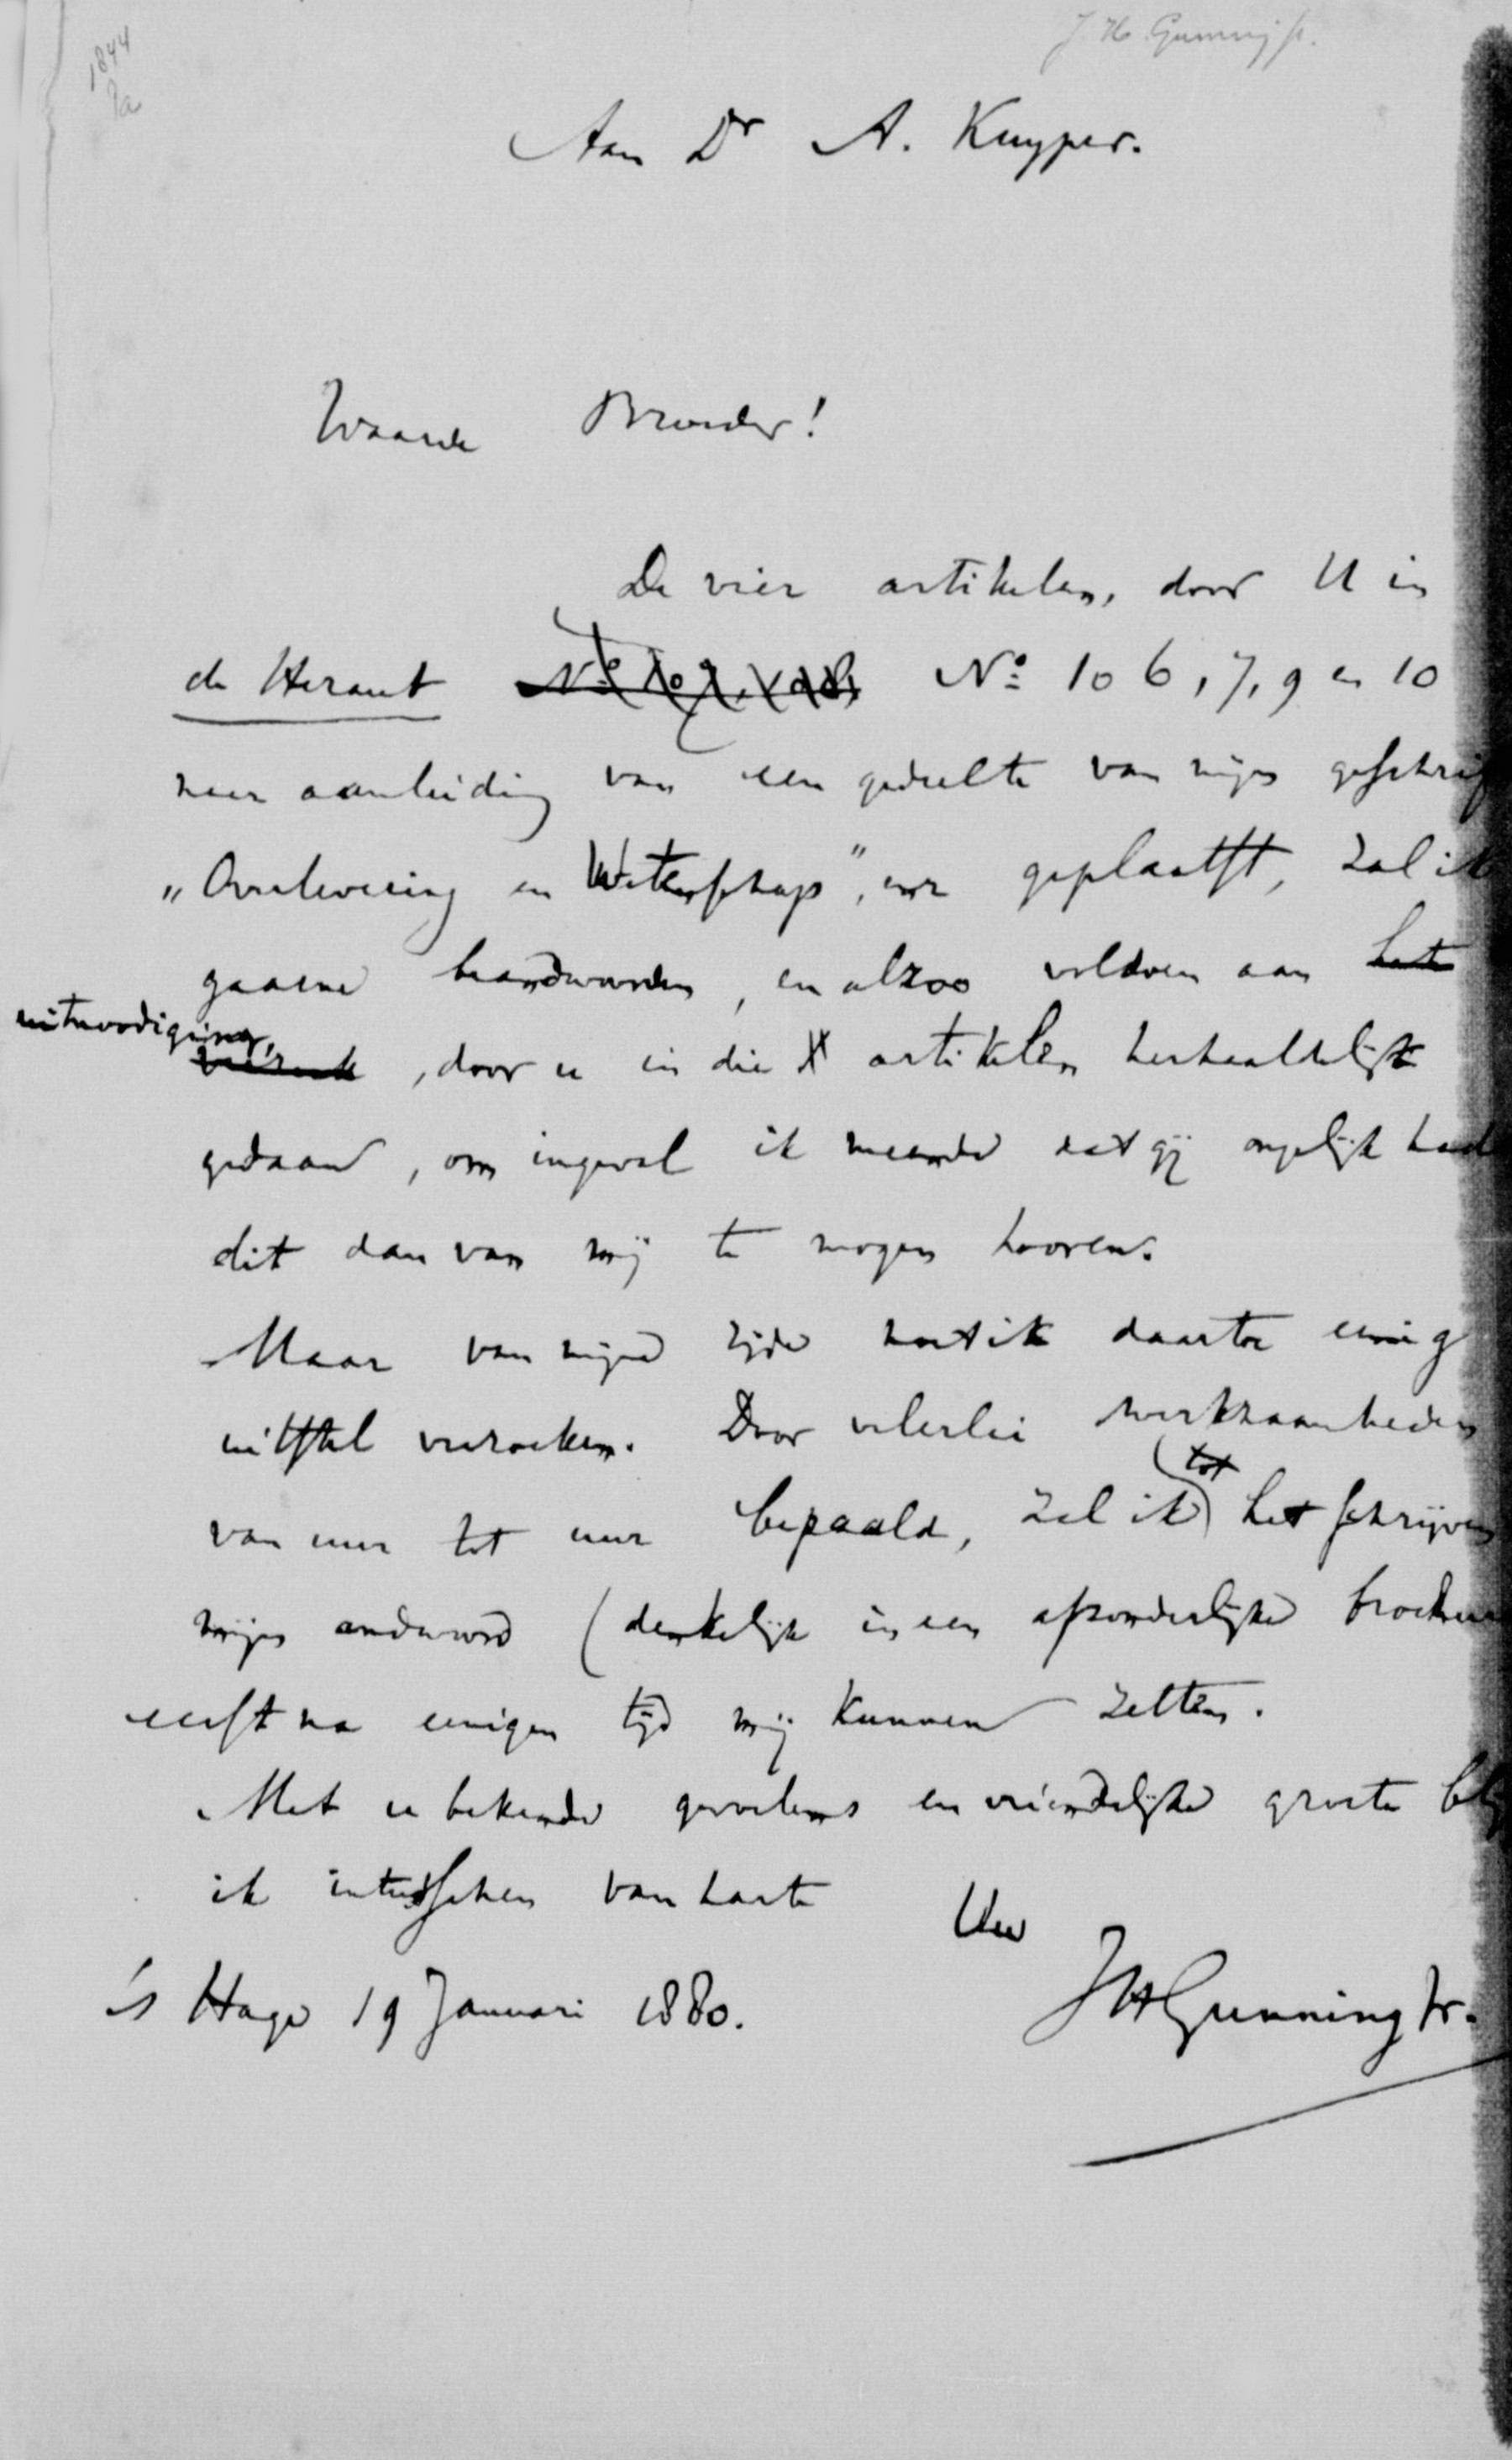 J. H. Gunning Jr.
1844
2a
Aan Dr A. Kuyper.
Waarde Broeder!
De vier artikelen, door U in
de Heraut No 106, 7, 9 en 10
naar aanleiding van een gedeelte van mijn geschrif
„Overlevering en Wetenschap", m.n. geplaatst, zal ik
gaarne beantwoorden, en alzoo voldoen aan het
uitnoodiging,
verzoek, door u in die artikelen herhaaldelijk
gedaan, om ingeval ik meende dat gij ongelijk had
dit dan van mij te mogen hooren.
Maar van mijne zijde moet ik daartoe eenig
uitstel verzoeken. Door velerlei werkzaamheden
van uur tot uur bepaald, zal ik tot het schrijven
mijns andwoord (denkelijk in een afzonderlijke brochure
eerst na eenigen tijd mij kunnen zetten.
Met u bekende gevoelens en vriendelijke groete blij
ik intusschen van harte
Uw
JHGunning Jr.
's Hage 19 Januari 1880.